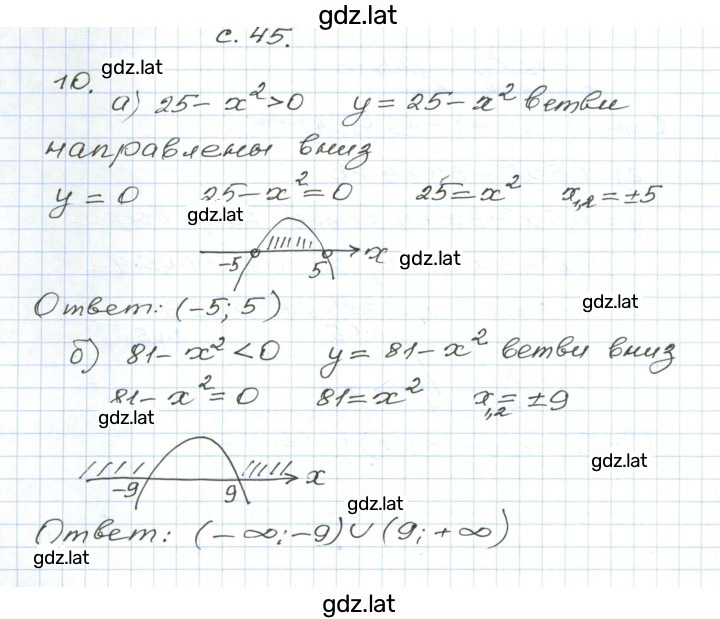 gdz.lat
с. 45.
10. gdz.lat
а) 25 - x² > 0 y = 25 - x² ветви
направлены вниз
y = 0 25 - x² = 0 25 = x² x₁,₂ = ±5
gdz.lat
-5 5 x gdz.lat
Ответ: (-5; 5) gdz.lat
б) 81 - x² < 0 y = 81 - x² ветви вниз
81 - x² = 0 81 = x² x₁,₂ = ±9
gdz.lat
-9 9 x gdz.lat
gdz.lat
Ответ: (-∞; -9) ∪ (9; +∞)
gdz.lat
gdz.lat